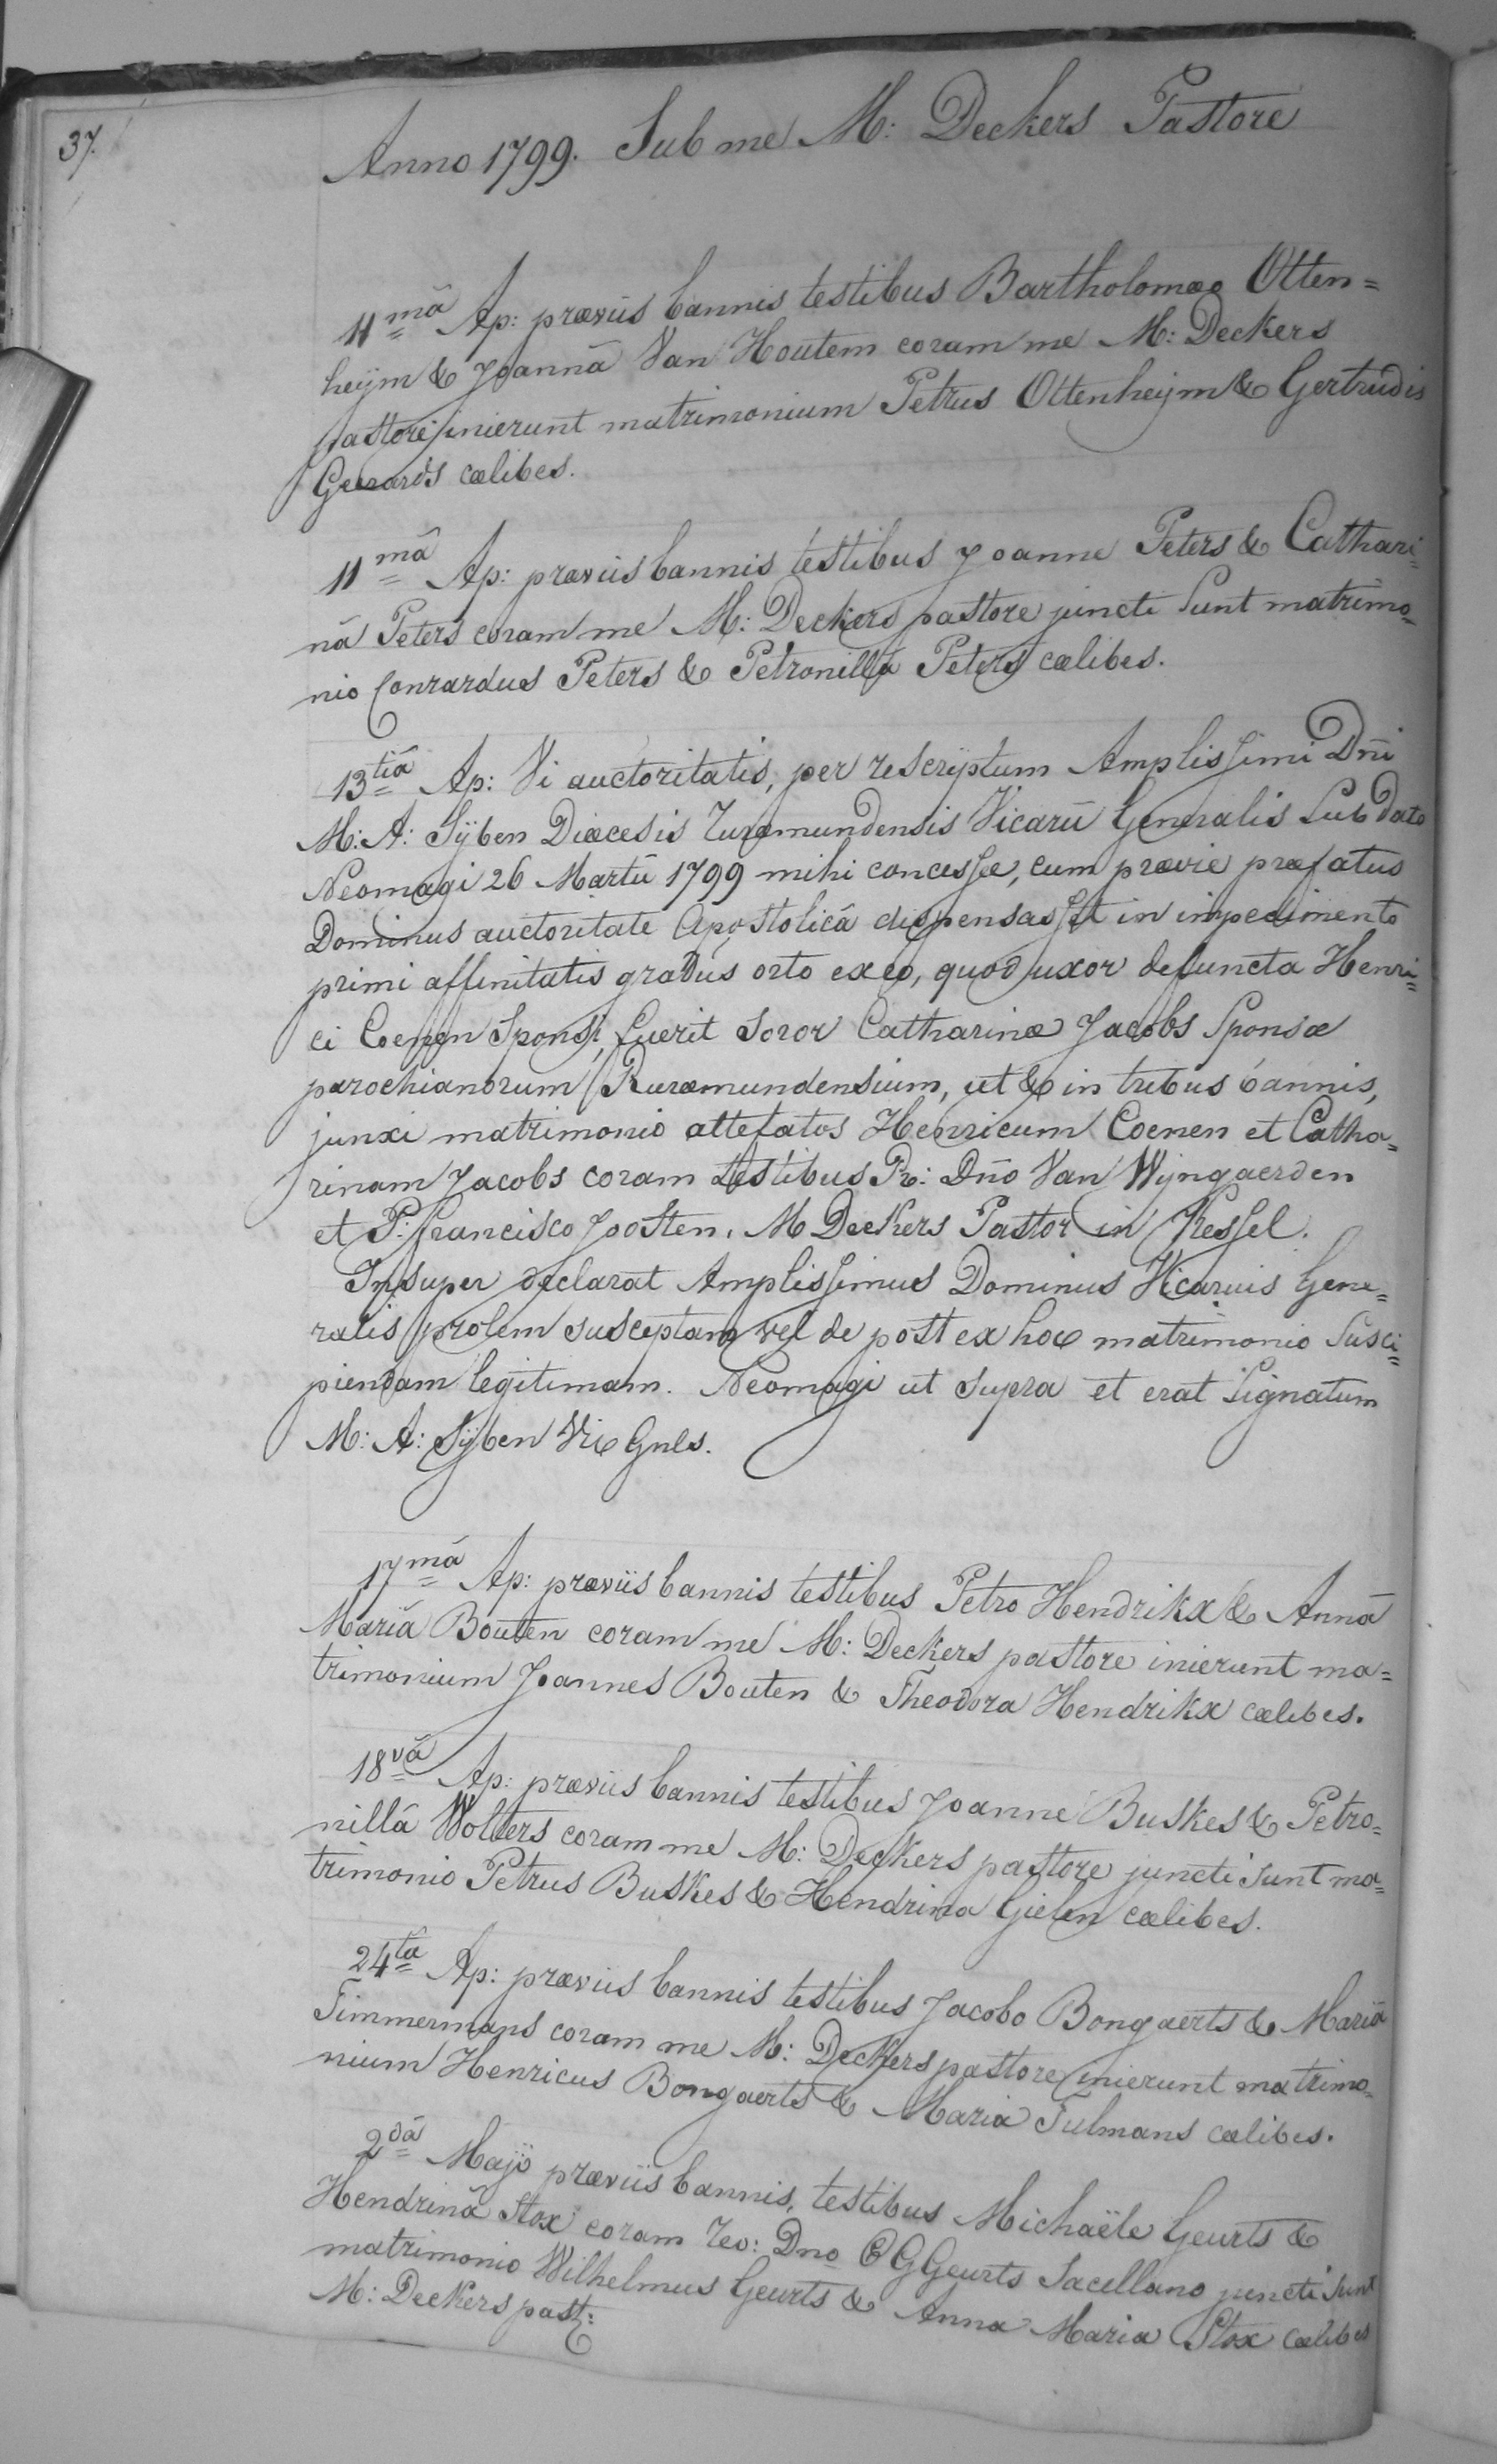 37.
Anno 1799. Sub me M: Deckers Pastore
11mâ Ap: præviis bannis testibus Bartholomæo Otten=
heijm & Joannâ Van Houtem coram me M: Deckers
pastore inierunt matrimonium Petrus Ottenheijm & Gertrudis
Geerards cælibes.
11mâ Ap: præviis bannis testibus Joanne Peters & Cathari=
nâ Peters coram me M: Deckers pastore juncti sunt matrimo=
nio Conrardus Peters & Petronilla Peters cælibes.
13tiâ Ap: Vi auctoritatis, per rescriptum Amplissimi Dñi
M: A: Sÿben Diœcesis Ruræmundensis Vicarii Generalis sub dato
Neomagi 26 Martii 1799 mihi concessæ, cum prævie præfatus
Dominus auctoritate Apostolicâ dispensasset in impedimento
primi affinitatis gradûs orto ex eo, quod uxor defuncta Henri=
ci Coenen Sponsi, fuerit soror Catharinæ Jacobs Sponsæ
parochianorum Ruræmundensium, ut & in tribus bannis,
junxi matrimonio attefatos Henricum Coenen et Catha=
rinam Jacobs coram testibus R: Dño Van Wijngaerden
et P: francisco Joosten. M Deckers Pastor in Kessel.
Insuper declarat Amplissimus Dominus Vicarius Gene=
ralis prolem susceptam vel de post ex hoc matrimonio susci=
piendam legitimam. Neomagi ut supra et erat signatum
M: A: Sÿben Vic Gnls.
17mâ Ap: præviis bannis testibus Petro Hendrikx & Annâ
Mariâ Bouten coram me M: Deckers pastore inierunt ma=
trimonium Joannes Bouten & Theodora Hendrikx cælibes.
18vâ Ap: præviis bannis testibus Joanne Buskes & Petro=
nillâ Wolters coram me M: Deckers pastore juncti sunt ma=
trimonio Petrus Buskes & Hendrina Gielen cælibes.
24ta Ap: præviis bannis testibus Jacobo Bongaerts & Mariâ
Timmermans coram me M: Deckers pastore inierunt matrimo=
nium Henricus Bongaerts & Maria Tulmans cælibes.
2dâ Maji præviis bannis, testibus Michaële Geurts &
Hendrinâ Stox coram rev: Dno G Geurts Sacellano juncti sunt
matrimonio Wilhelmus Geurts & Anna Maria Stox cælibes
M: Deckers past: